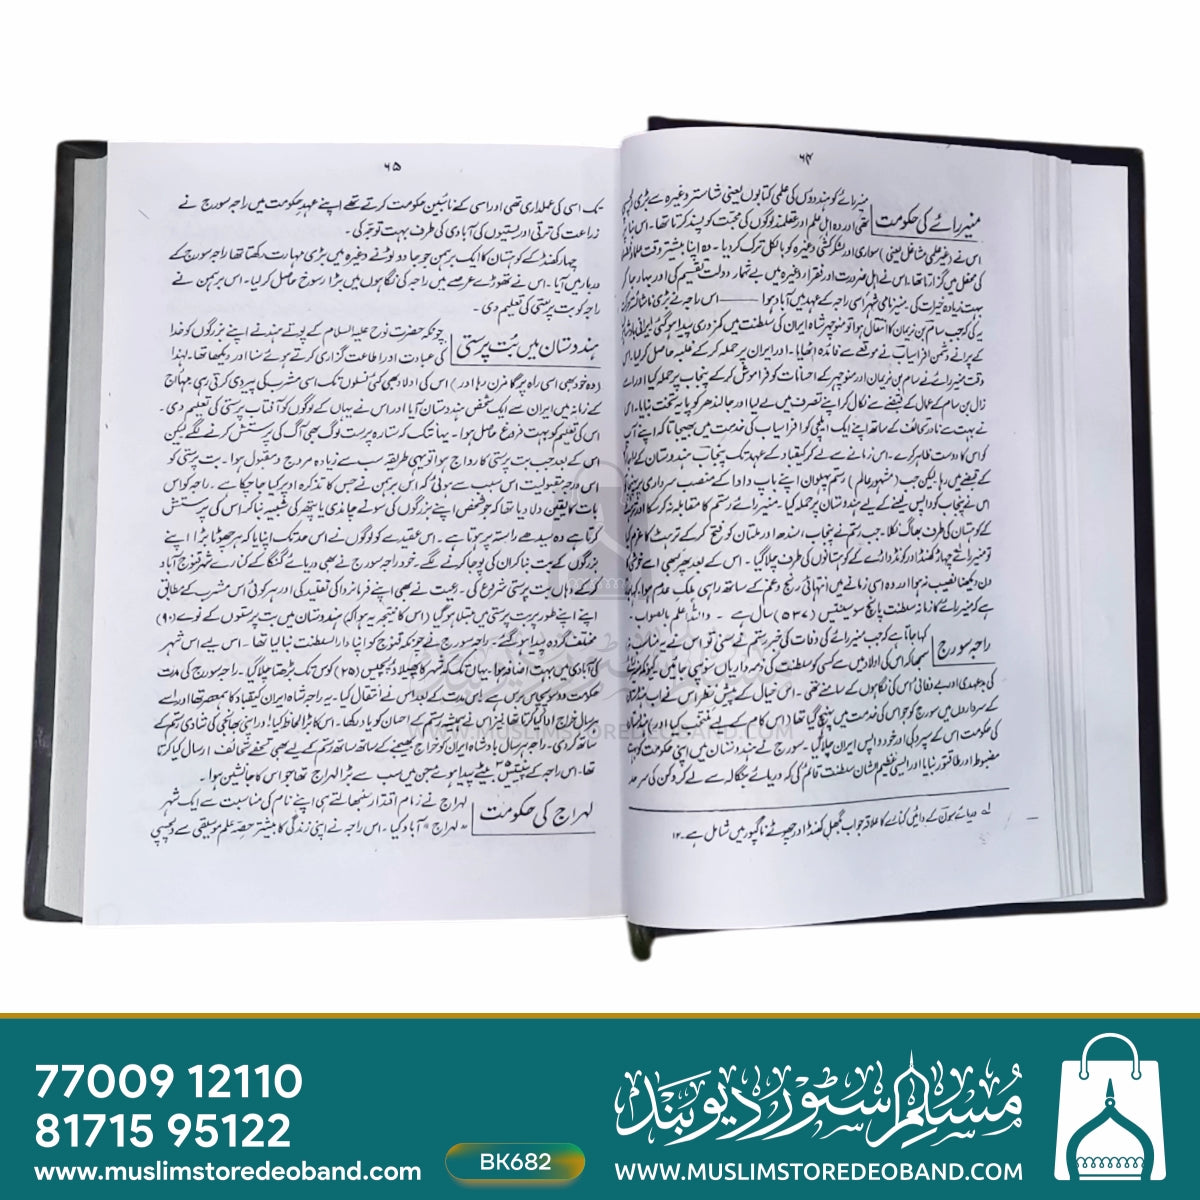 ۶۴
منیر رائے کی حکومت
منیر رائے کو ہندوؤں کی علمی کتابوں یعنی شاستر وغیرہ سے بڑی
تھی اور وہ اہلِ علم اور عقلمند لوگوں کی صحبت کو پسند کرتا تھا۔ اس بنا پر
اس نے غیر علمی مشاغل یعنی سواری اور لشکر کشی وغیرہ کو بالکل ترک کر دیا۔ وہ اپنا بیشتر وقت علماء
کی محفل میں گزارتا تھا۔ اس نے اہلِ ضرورت اور فقراء وغیرہ میں بے شمار دولت تقسیم کی اور بہار جا کر
بہت زیادہ خیرات کی۔ منیر نامی شہر اسی راجہ کے عہد میں آباد ہوا ——— اس راجہ نے بڑی
یہ کی کہ جب سام بن نریمان کا انتقال ہوا تو منوچہر شاہ ایران کی سلطنت میں کمزوری پیدا ہو گئی
کے پرانے دشمن افراسیاب نے موقعے سے فائدہ اٹھایا۔ اور ایران پر حملہ کر کے غلبہ حاصل کر لیا۔ اس
وقت منیر رائے نے سام بن نریمان اور منوچہر کے احسانات کو فراموش کر کے پنجاب پر حملہ کیا اور اسے
زال بن سام کے عمال کے قبضے سے نکال کر اپنے تصرف میں لے لیا اور جالندھر کو پایہ تخت بنایا۔ اس
نے بہت سے نادر تحائف کے ساتھ اپنے ایک ایلچی کو افراسیاب کی خدمت میں بھیجا تاکہ اپنے آپ
کو اس کا دوست ظاہر کرے۔ اس زمانے سے لے کر کیقباد کے عہد تک پنجاب ہندوستان کے
کے قبضے میں رہا لیکن جب (مشہور عالم) رستم پہلوان اپنے باپ دادا کے منصب سرداری پر پہنچا
اس نے پنجاب کو واپس لینے کے لیے ہندوستان پر حملہ کیا۔ منیر رائے رستم کا مقابلہ نہ کر سکا اور
کے کوہستان کی طرف بھاگ نکلا۔ جب رستم نے پنجاب، سندھ اور ملتان کو فتح کر کے ترہٹ کا عزم کیا
تو منیر رائے چھاڑ کھنڈ اور گونڈواڑے کے کوہستانوں کی طرف چلا گیا۔ اس کے بعد پھر کبھی اسے خوشی کا
دن دیکھنا نصیب نہ ہوا اور وہ اسی زمانے میں انتہائی رنج و غم کے ساتھ راہی ملکِ عدم ہوا۔ کہا جاتا
ہے کہ منیر رائے کا زمانہ سلطنت پانچ سو سینتیس (۵۳۷) سال ہے۔ واللہ اعلم بالصواب۔
راجہ سورج
کہا جاتا ہے کہ جب منیر رائے کی وفات کی خبر رستم نے سنی تو اس نے یہ مناسب نہ
سمجھا کہ اس کی اولاد میں سے کسی کو سلطنت کی ذمہ داریاں سونپی جائیں، کیونکہ منیر رائے
کی بد عہدی اور بے وفائی اس کی نگاہوں کے سامنے تھی۔ اس خیال کے پیش نظر اس نے اب
کے سرداروں میں سورج کو جو اس کی خدمت میں پہنچ گیا تھا (اس کام کے لیے) منتخب کیا اور ہندوستان
کی حکومت اس کے سپرد کی اور خود واپس ایران چلا گیا۔ سورج نے ہندوستان میں اپنی حکومت کو بہت
مضبوط اور طاقتور بنایا اور ایسی عظیم الشان سلطنت قائم کی کہ دریائے بنگالہ سے لے کر دکن کی سرحد
لے دریائے سون کے دائیں کنارے کا علاقہ جو اب بگھیل کھنڈ اور چھوٹے ناگپور میں شامل ہے۔ ۱۲
۶۵
تک اسی کی عملداری تھی اور اسی کے نائبین حکومت کرتے تھے اپنے عہدِ حکومت میں راجہ سورج نے
زراعت کی ترقی اور بستیوں کی آبادی کی طرف بہت توجہ کی۔
چھار کھنڈ کے کوہستان کا ایک برہمن جو جادو ٹونے وغیرہ میں بڑی مہارت رکھتا تھا راجہ سورج کے
دربار میں آیا۔ اس نے تھوڑے عرصے میں راجہ کی نگاہوں میں بڑا رسوخ حاصل کر لیا۔ اس برہمن نے
راجہ کو بت پرستی کی تعلیم دی۔
ہندوستان میں بُت پرستی
چونکہ حضرت نوح علیہ السلام کے پوتے ہند نے اپنے بزرگوں کو خدا
کی عبادت اور اطاعت گزاری کرتے ہوئے سنا اور دیکھا تھا۔ لہٰذا
(وہ خود بھی اسی راہ پر گامزن رہا اور) اس کی اولاد بھی کئی نسلوں تک اسی مشرب کی پیروی کرتی رہی۔ مہاراج
کے زمانہ میں ایران سے ایک شخص ہندوستان آیا اور اس نے یہاں کے لوگوں کو آفتاب پرستی کی تعلیم دی۔
اس کی تعلیم کو بہت فروغ حاصل ہوا۔ یہاں تک کہ ستارہ پرست لوگ بھی آگ کی پرستش کرنے لگے لیکن
اس کے بعد جب بت پرستی کا رواج ہوا تو یہی طریقہ سب سے زیادہ مروج و مقبول ہوا۔ بت پرستی کو
اس درجہ مقبولیت اس سبب سے ہوئی کہ اس برہمن نے جس کا تذکرہ اوپر کیا جا چکا ہے۔ راجہ کو اس
بات کا یقین دلا دیا تھا کہ جو شخص اپنے بزرگوں کی سونے چاندی یا پتھر کی شبیہہ بنا کر اس کی پرستش
کرتا ہے وہ سیدھے راستہ پر ہوتا ہے۔ اس عقیدے کو لوگوں نے اس حد تک اپنایا کہ ہر چھوٹا بڑا اپنے
بزرگوں کے بت بنا کر ان کی پوجا کرنے لگے۔ خود راجہ سورج نے بھی دریائے گنگا کے کنارے شہر قنوج آباد
کر کے وہاں بت پرستی شروع کی۔ رعیت نے بھی اپنے فرمانروا کی تقلید کی اور ہر کوئی اس مشرب کے مطابق
اپنے اپنے طور پر بت پرستی میں مبتلا ہو گیا (اس کا نتیجہ یہ ہوا کہ) ہندوستان میں بت پرستوں کے نوے (۹۰)
مختلف گروہ پیدا ہو گئے۔ راجہ سورج نے چونکہ قنوج کو اپنا دارالسلطنت بنا لیا تھا۔ اس لیے اس شہر
کی آبادی میں بہت اضافہ ہوا۔ یہاں تک کہ شہر کا پھیلاؤ پچیس (۲۵) کوس تک بڑھتا چلا گیا۔ راجہ سورج کی مدت
حکومت دو سو پچاس برس ہے۔ اس مدت کے بعد اس نے انتقال کیا۔ یہ راجہ شاہ ایران کیقباد کا ہمعصر تھا اور اسے
ہر سال خراج ادا کیا کرتا تھا نیز اس نے ہمیشہ رستم کے احسان کو یاد رکھا۔ اس کا بڑا لحاظ کیا اور اپنی بھانجی کی شادی رستم کے
ساتھ کر دی۔ راجہ ہر سال بادشاہ ایران کو خراج بھیجنے کے ساتھ ساتھ رستم کے لیے بھی تحفے تحائف ارسال کیا کرتا
تھا۔ اس راجہ کے پینتیس ۳۵ بیٹے پیدا ہوئے جن میں سب سے بڑا لہراج تھا جو اس کا جانشین ہوا۔
لہراج کی حکومت
لہراج نے زمامِ اقتدار سنبھالتے ہی اپنے نام کی مناسبت سے ایک شہر
"لہراج" آباد کیا۔ اس راجہ نے اپنی زندگی کا بیشتر حصہ علمِ موسیقی سے دلچسپی
WWW.MUSLIMSTOREDEOBAND.COM
77009 12110
81715 95122
www.muslimstoredeoband.com
BK682
مُسلم سٹور دیوبند
WWW.MUSLIMSTOREDEOBAND.COM